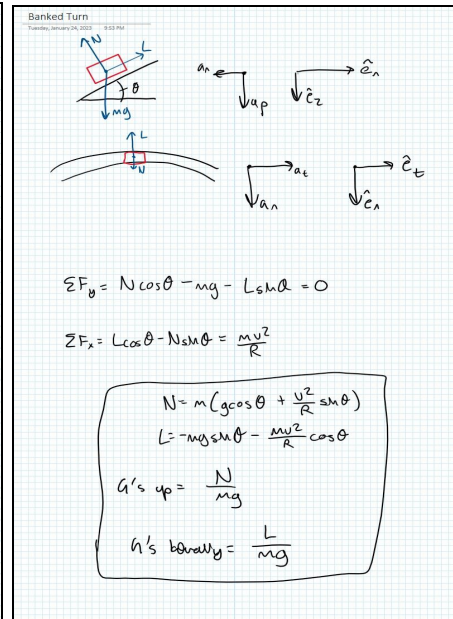 Banked Turn
Tuesday, January 24, 2023 9:53 PM
N
L
θ
mg
aₙ
aₚ
êₙ
ê₂
L
N
aₜ
aₙ
êₜ
êₙ
ΣFᵧ = Ncosθ - mg - Lsinθ = 0
ΣFₓ = Lcosθ - Nsinθ = mv²/R
N = m(gcosθ + v²/R sinθ)
L = -mgsinθ - mv²/R cosθ
G's up = N/mg
G's = L/mg